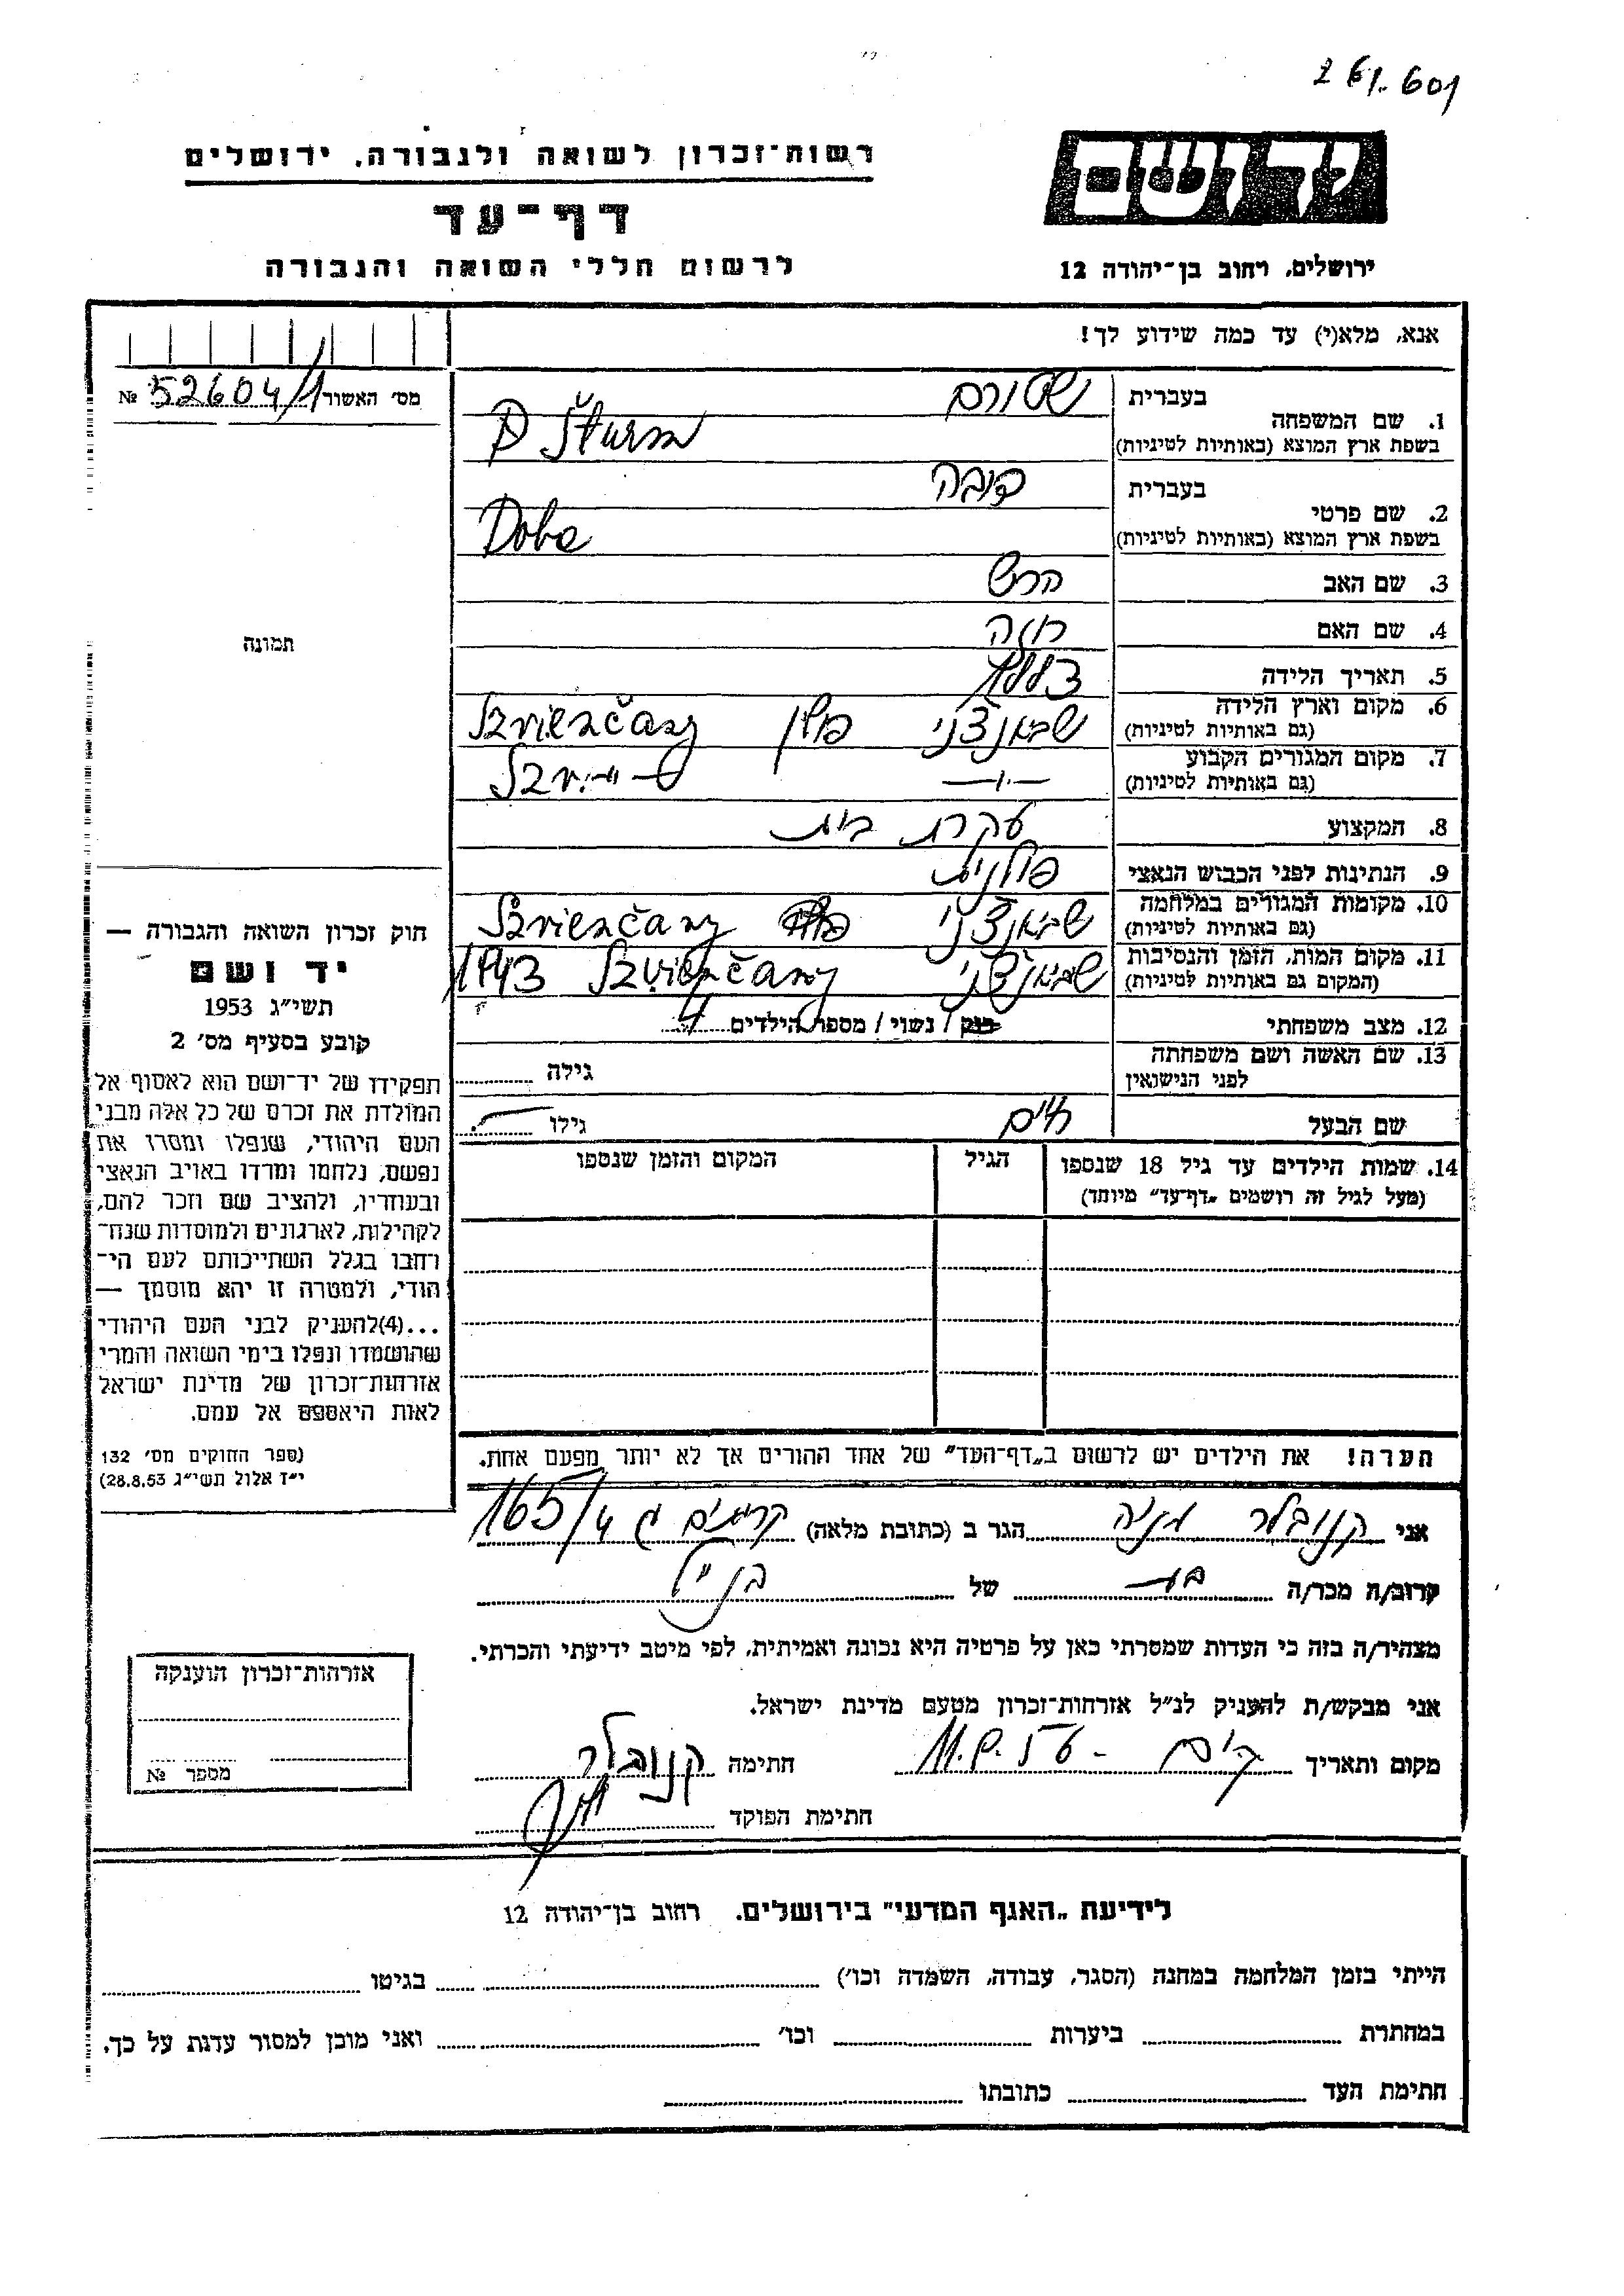 261.601
רשות־זכרון לשואה ולגבורה, ירושלים
דף־עד
לרשום חללי השואה והגבורה
יד ושם
ירושלים, רחוב בן־יהודה 12
אנא, מלא(י) עד כמה שידוע לך!
מס׳ האשור 52604/1 №
תמונה
בעברית שטורם
1. שם המשפחה
בשפת ארץ המוצא (באותיות לטיניות) Šturm
בעברית דובה
2. שם פרטי
בשפת ארץ המוצא (באותיות לטיניות) Doba
3. שם האב הרש
4. שם האם חוה
5. תאריך הלידה 1883
6. מקום וארץ הלידה
(גם באותיות לטיניות) פולין Szvienčany
7. מקום המגורים הקבוע
(גם באותיות לטיניות)
8. המקצוע עקרת בית
9. הנתינות לפני הכבוש הנאצי פולנית
10. מקומות המגורים במלחמה
(גם באותיות לטיניות) Szvienčany
11. מקום המות, הזמן והנסיבות
(המקום גם באותיות לטיניות) Szvienčany 1943
12. מצב משפחתי רוק / נשוי / מספר הילדים 4
13. שם האשה ושם משפחתה
לפני הנישואין גילה
שם הבעל חיים גילו
14. שמות הילדים עד גיל 18 שנספו הגיל המקום והזמן שנספו
(מעל לגיל זה רושמים „דף־עד״ מיוחד)
הערה! את הילדים יש לרשום ב„דף־העד״ של אחד ההורים אך לא יותר מפעם אחת.
חוק זכרון השואה והגבורה —
יד ושם
תשי״ג 1953
קובע בסעיף מס׳ 2
תפקידו של יד־ושם הוא לאסוף אל
המולדת את זכרם של כל אלה מבני
העם היהודי, שנפלו ומסרו את
נפשם, נלחמו ומרדו באויב הנאצי
ובעוזריו, ולהציב שם וזכר להם,
לקהילות, לארגונים ולמוסדות שנח־
רחבו בגלל השתייכותם לעם הי־
הודי, ולמטרה זו יהא מוסמך —
...(4)להעניק לבני העם היהודי
שהושמדו ונפלו בימי השואה והמרי
אזרחות־זכרון של מדינת ישראל
לאות היאספם אל עמם.
(ספר החוקים מס׳ 132
י״ז אלול תשי״ג 28.8.53)
אני קנובלר מניה הגר ב (כתובת מלאה) 165/4
קרוב/ה מכר/ה בת של הנ״ל
מצהיר/ה בזה כי העדות שמסרתי כאן על פרטיה היא נכונה ואמיתית, לפי מיטב ידיעתי והכרתי.
אני מבקש/ת להעניק לנ״ל אזרחות־זכרון מטעם מדינת ישראל.
מקום ותאריך חתימה קנובלר
חתימת הפוקד
אזרחות־זכרון הוענקה
מספר №
לידיעת „האגף המדעי״ בירושלים, רחוב בן־יהודה 12
הייתי בזמן המלחמה במחנה (הסגר, עבודה, השמדה וכו׳) בגיטו
במחתרת ביערות וכו׳ ואני מוכן למסור עדות על כך.
חתימת העד כתובתו